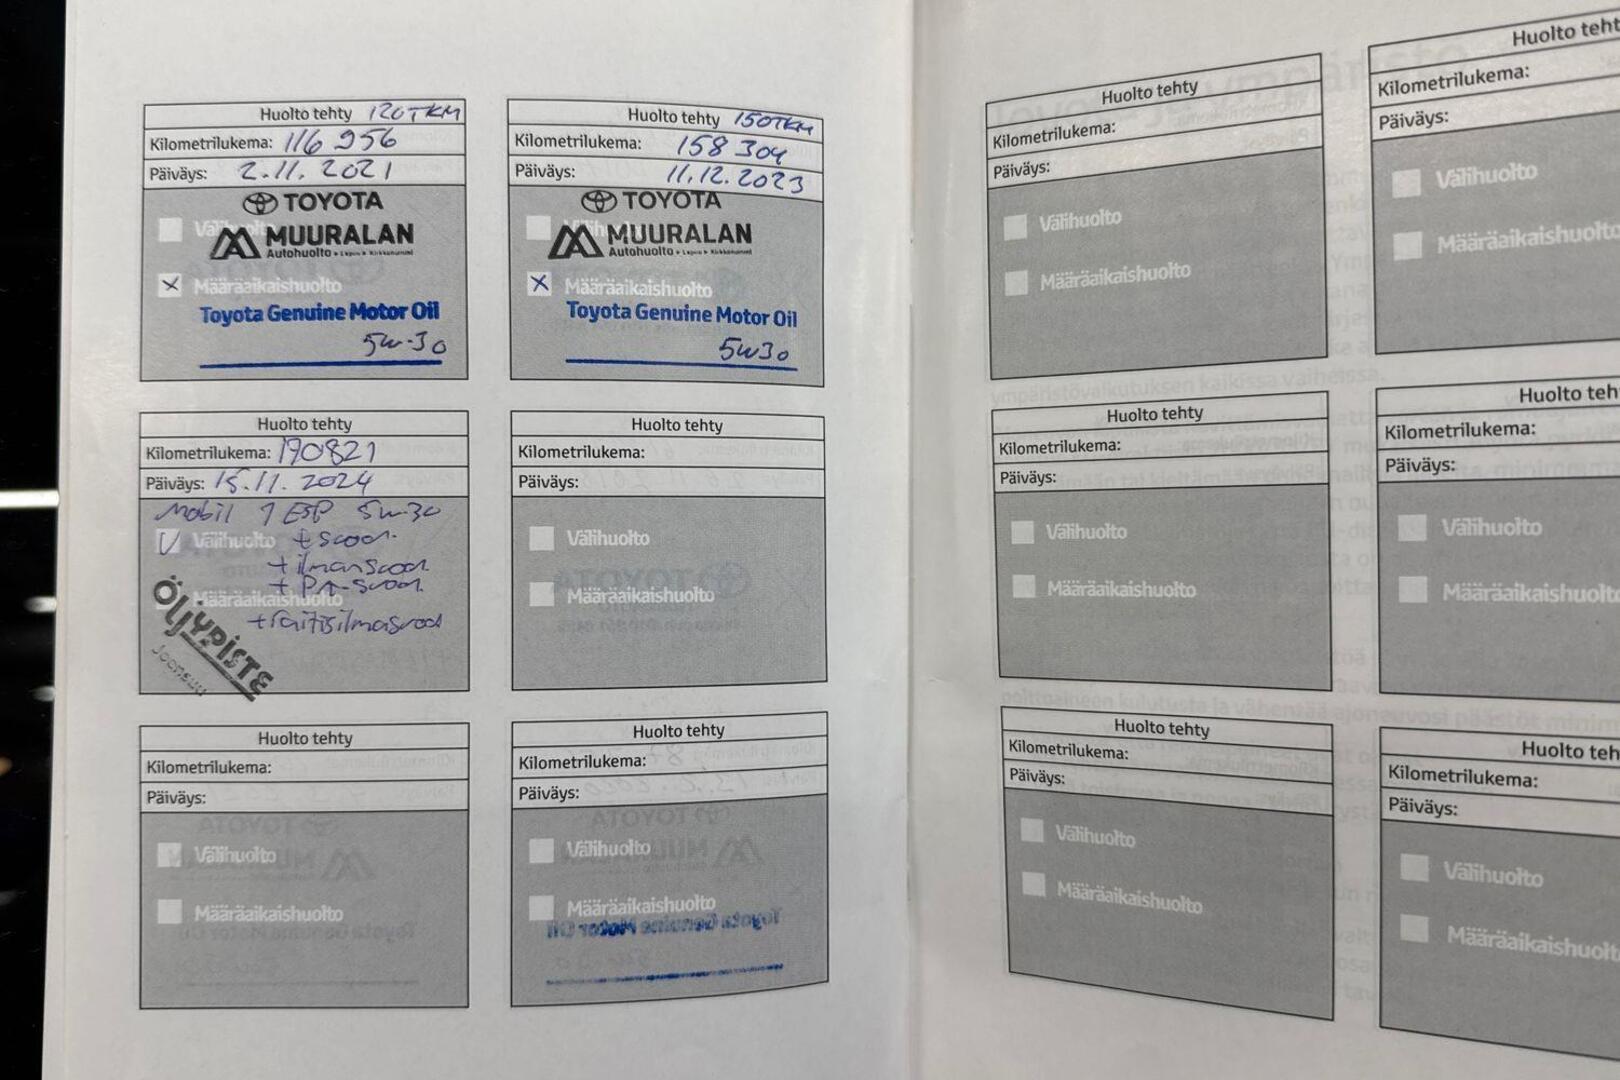 Huolto tehty 120TKM
Kilometrilukema: 116 956
Päiväys: 2.11.2021
TOYOTA
Välihuolto
MUURALAN
Autohuolto • Lapua • Kirkkonummi
Määräaikaishuolto
Toyota Genuine Motor Oil
5w-30
Huolto tehty 150TKM
Kilometrilukema: 158 304
Päiväys: 11.12.2023
TOYOTA
Välihuolto
MUURALAN
Autohuolto
Määräaikaishuolto
Toyota Genuine Motor Oil
5w30
Huolto tehty
Kilometrilukema: 190821
Päiväys: 15.11.2024
Mobil 1 ESP 5w-30
Välihuolto + s.uod.
+ ilmansuod.
+ PA-suod.
Määräaikaishuolto
+ raitisilmasuod
ÖLJYPISTE
Joensuu
Huolto tehty
Kilometrilukema:
Päiväys:
Välihuolto
Määräaikaishuolto
Huolto tehty
Kilometrilukema:
Päiväys:
Välihuolto
Määräaikaishuolto
Huolto tehty
Kilometrilukema:
Päiväys:
Välihuolto
Määräaikaishuolto
Huolto tehty
Kilometrilukema:
Päiväys:
Välihuolto
Määräaikaishuolto
Huolto teht
Kilometrilukema:
Päiväys:
Välihuolto
Määräaikaishuolto
Huolto tehty
Kilometrilukema:
Päiväys:
Välihuolto
Määräaikaishuolto
Huolto teh
Kilometrilukema:
Päiväys:
Välihuolto
Määräaikaishuolto
Huolto tehty
Kilometrilukema:
Päiväys:
Välihuolto
Määräaikaishuolto
Huolto teh
Kilometrilukema:
Päiväys:
Välihuolto
Määräaikaishuolt